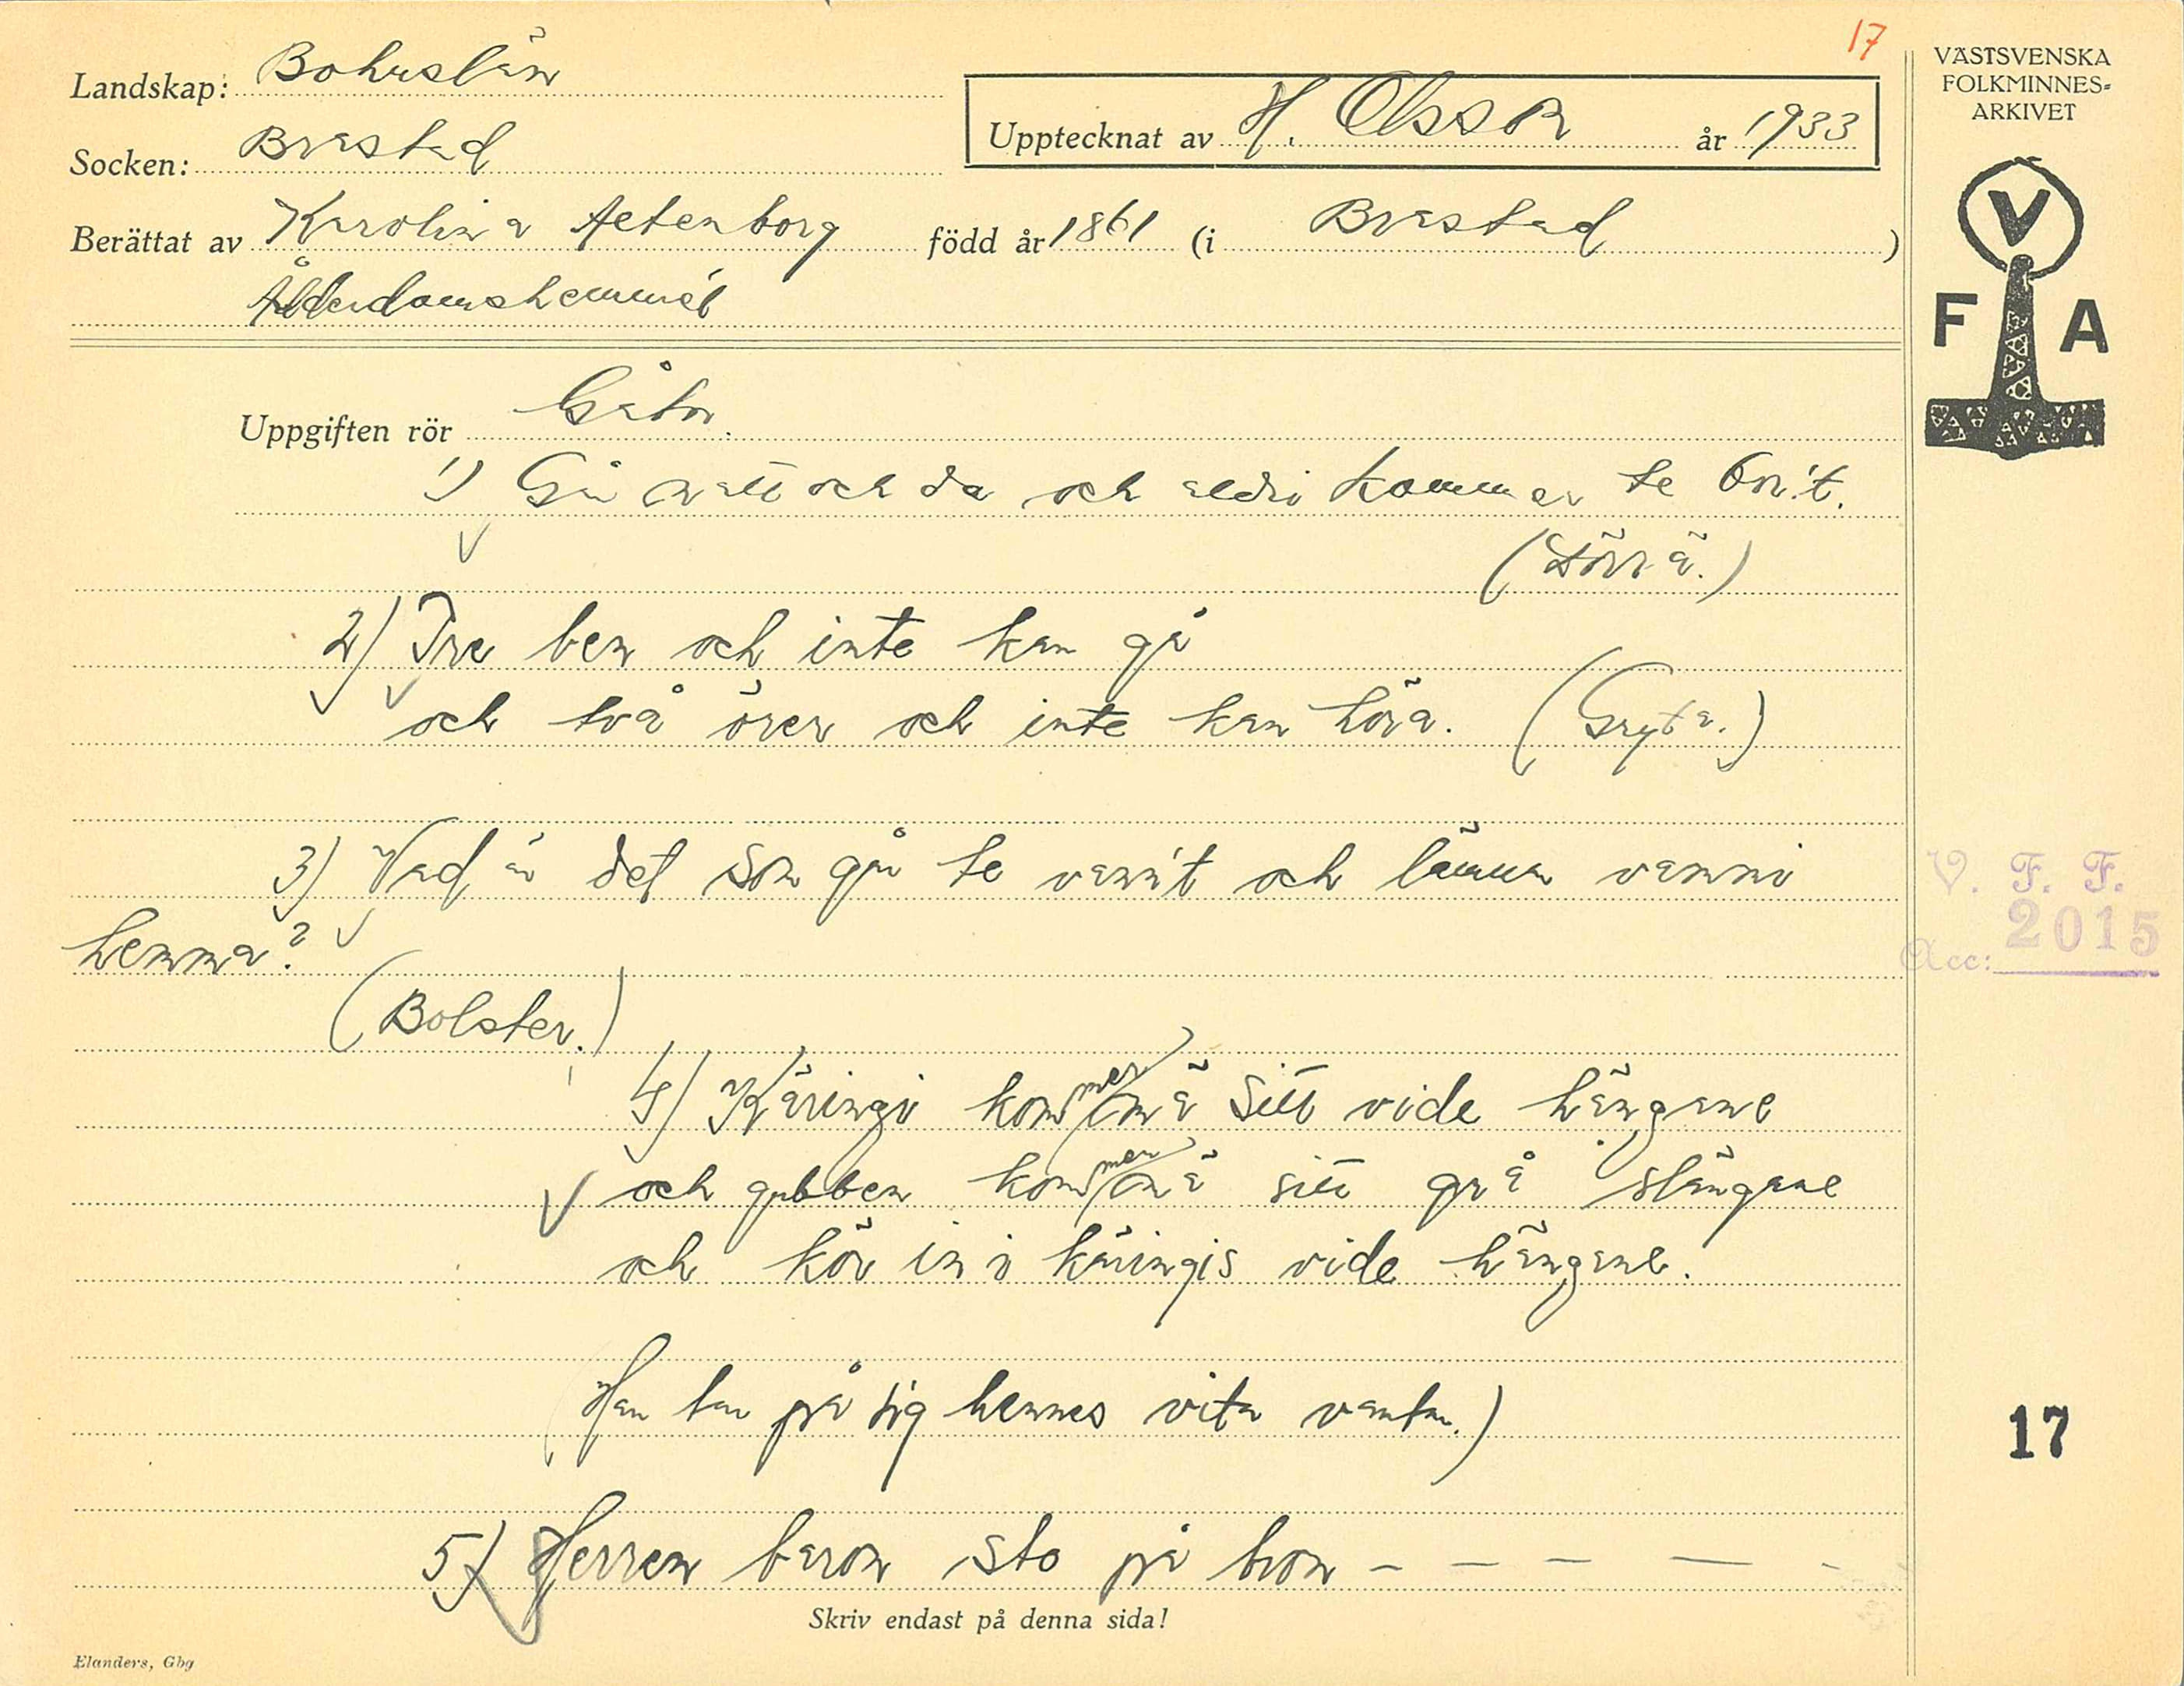 17
VÄSTSVENSKA
FOLKMINNES-
ARKIVET
Landskap: Bohuslän
Upptecknat av H. Olsson år 1933
Socken: Brastad
Berättat av Karolina Aetenborg född år 1861 (i Brastad)
Ålderdomshemmet
V
F A
Uppgiften rör Gåtor.
1) Går natt och da och aldri kommer te bor't.
(Dörrä.)
2) Tre ben och inte kan gå
och två örer och inte kan höra. (Gryta.)
3) Vad är det som går te vann't och lämnar
hemma?
(Bolster.)
V. F. F.
Acc: 2015
4) Käringi kommer mä sitt vide hängane
och gubben kommer mä sitt grå slängane
och kör in i käringis vide hängane.
(Han tar på sig hennes vita vantar.)
17
5) Herren baron sto på bron - - - - -
Skriv endast på denna sida!
Elanders, Gbg